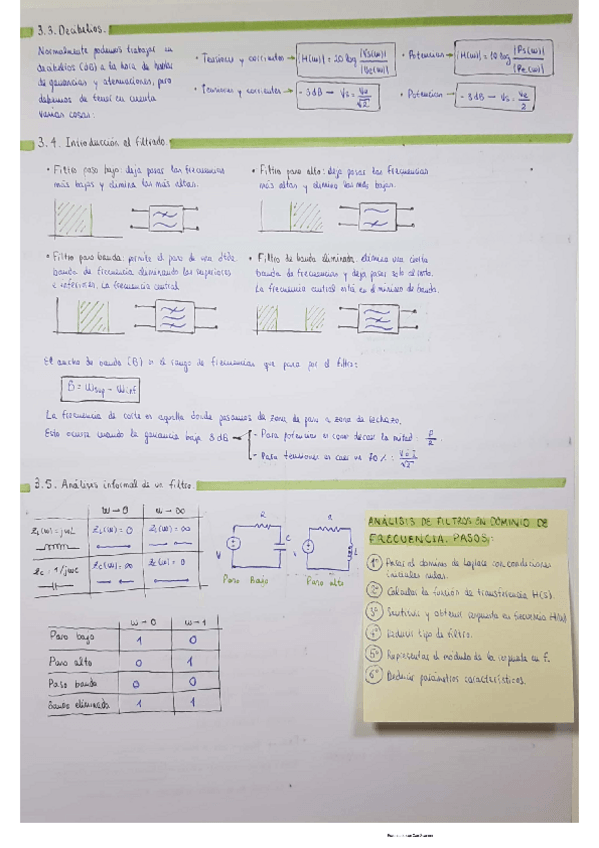 3.3. Decibelios.
Normalmente podemos trabajar en
decibelios (dB) a la hora de hablar
de ganancias y atenuaciones, pero
debemos de tener en cuenta
varias cosas:
• Tensiones y corrientes → |H(w)| = 20 log |Vs(w)| / |Ve(w)|
• Potencias → |H(w)| = 10 log |Ps(w)| / |Pe(w)|
• Tensiones y corrientes → - 3dB → Vs = Ve/√2
• Potencias → - 3 dB → Vs = Ve/2
3.4. Introducción al filtrado.
• Filtro paso bajo: deja pasar las frecuencias
más bajas y elimina las más altas.
• Filtro paso alto: deja pasar las frecuencias
más altas y elimina las más bajas.
• Filtro paso banda: permite el paso de una
banda de frecuencia eliminando las superiores
e inferiores. La frecuencia central
• Filtro de banda eliminada: elimina una cierta
banda de frecuencias y deja pasar solo el resto.
La frecuencia central está en el mínimo de banda.
El ancho de banda (B) es el rango de frecuencias que pasa por el filtro:
B = wsup - winf
La frecuencia de corte es aquella donde pasamos de zona de paso a zona de rechazo.
Esto ocurre cuando la ganancia baja 3dB
- Para potencias es como decir la mitad: P/2
- Para tensiones es casi un 70%:
3.5. Análisis informal de un filtro.
w → 0 w → ∞
ZL(w) = jwL ZL(w) = 0 ZL(w) = ∞
Zc = 1/jwc Zc(w) = ∞ Zc(w) = 0
R C V
Paso Bajo
R L
Paso alto
w → 0 w → 1
Paso bajo 1 0
Paso alto 0 1
Paso banda 0 0
Banda eliminada 1 1
ANÁLISIS DE FILTROS EN DOMINIO DE
FRECUENCIA. PASOS:
1º Pasar al dominio de Laplace con condiciones
iniciales nulas.
2º Calcular la función de transferencia H(s).
3º Sustituir y obtener respuesta en frecuencia H(w)
4º Deducir tipo de filtro.
5º Representar el módulo de la respuesta en f.
6º Deducir parámetros característicos.